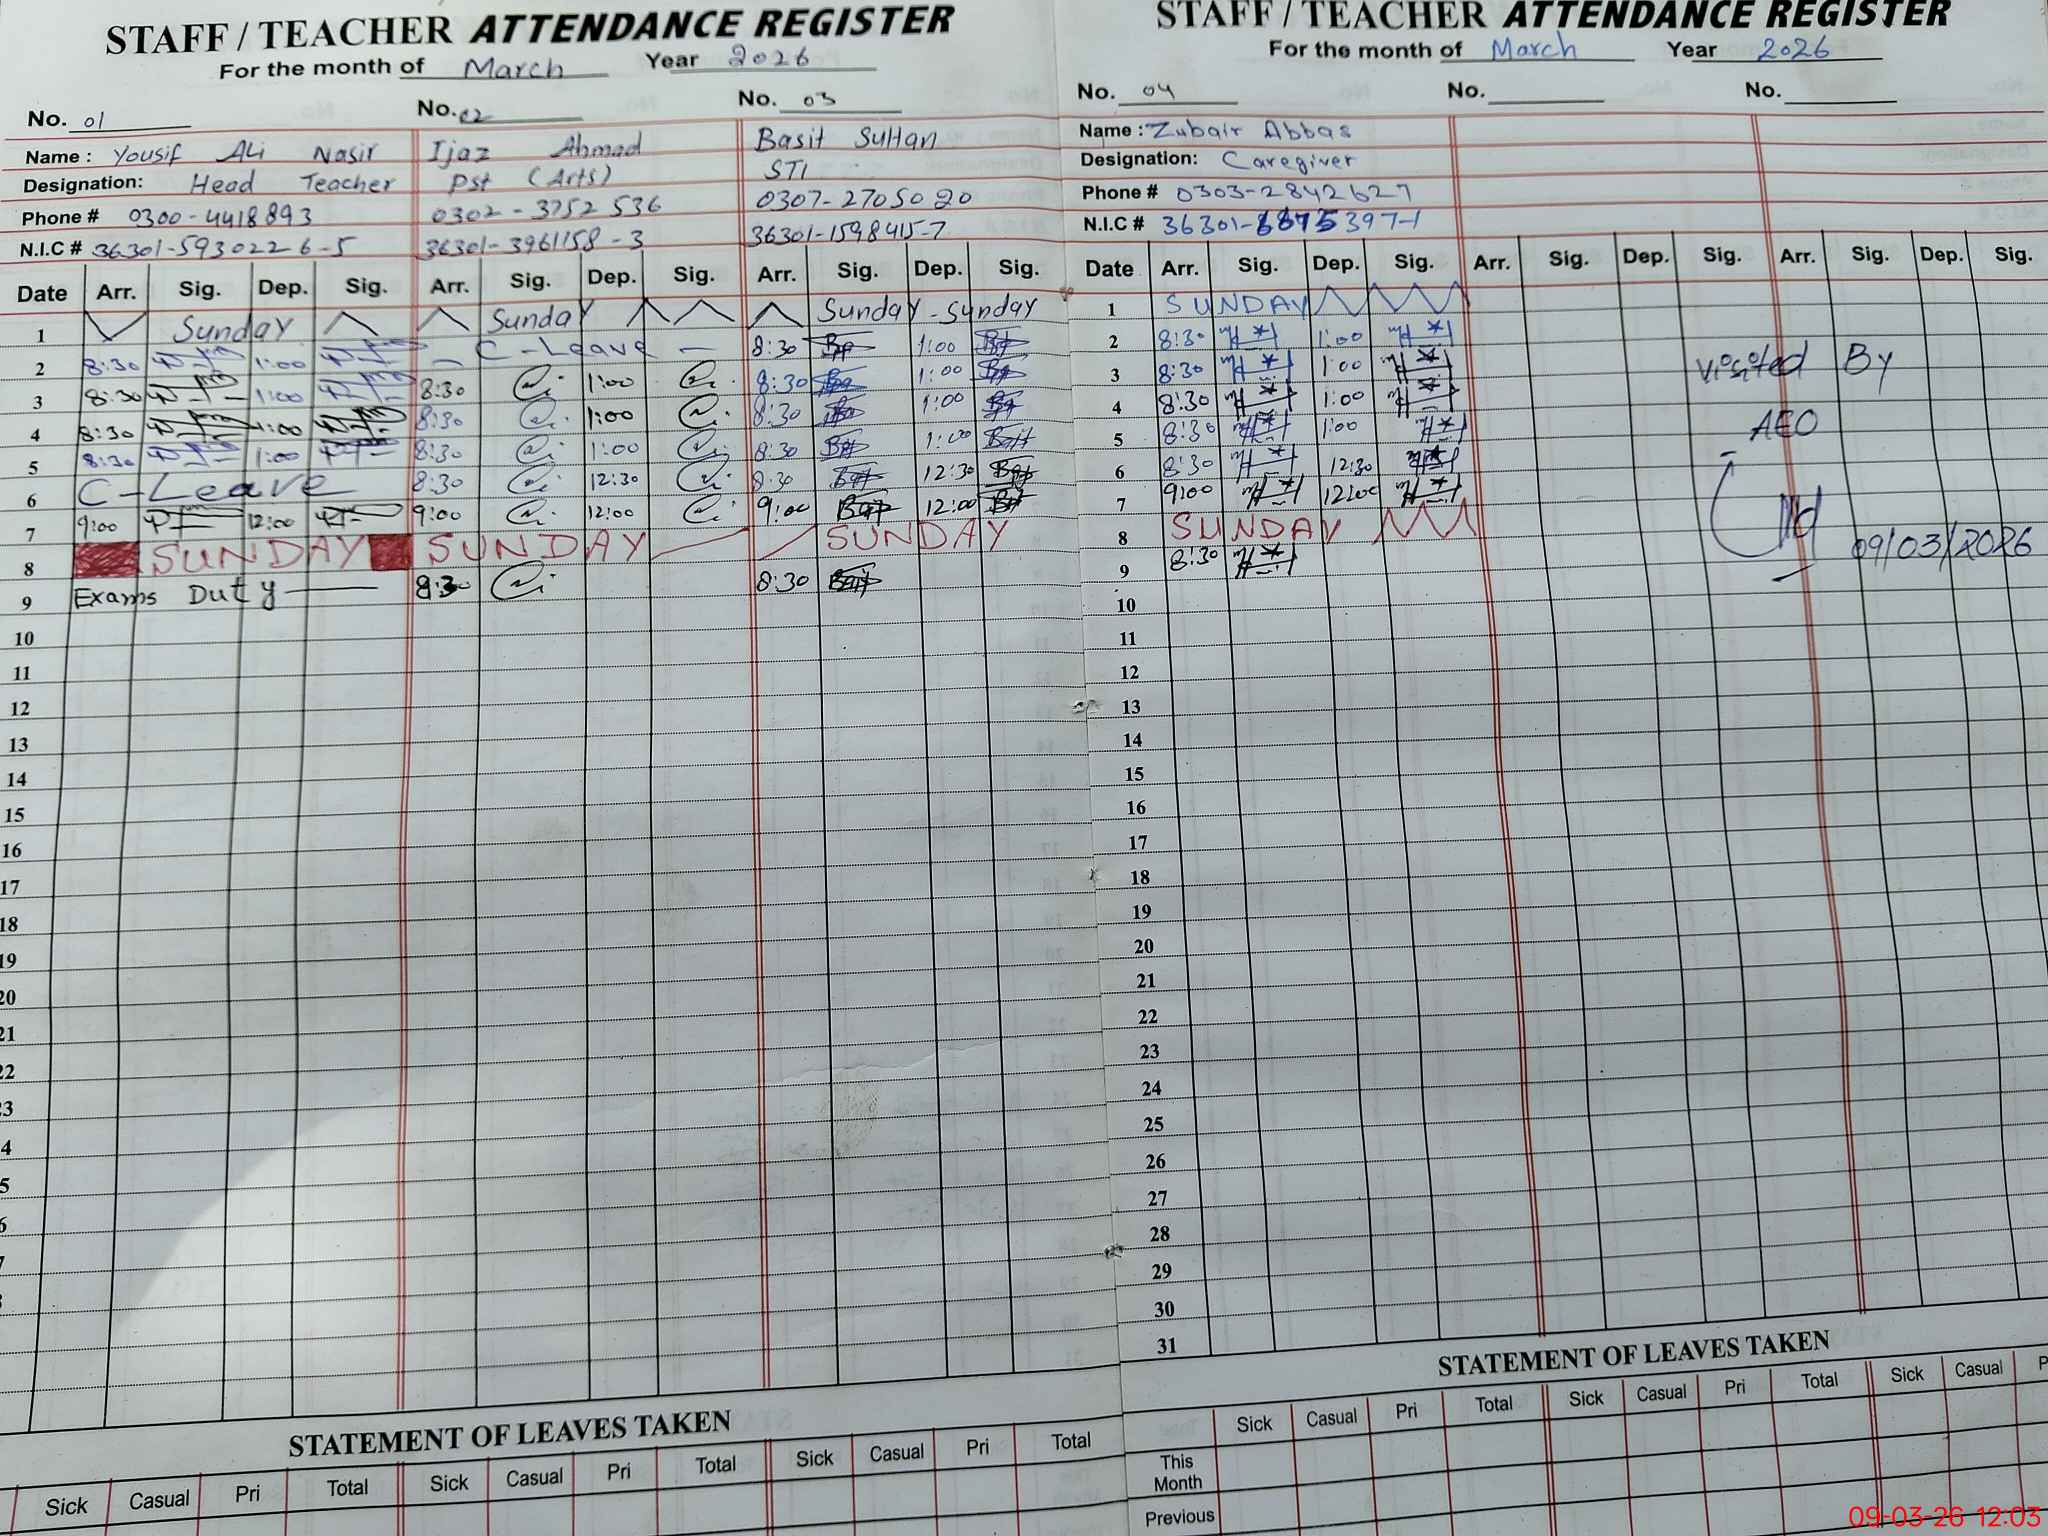 STAFF / TEACHER ATTENDANCE REGISTER
For the month of March Year 2026
No. 01 No. 02 No. 03
Name : Yousif Ali Nasir Ijaz Ahmad Basit Sultan
Designation: Head Teacher Pst (Arts) STI
Phone # 0300-4418893 0302-3752536 0307-2705020
N.I.C # 36301-5930226-5 36301-3961158-3 36301-1598415-7
Date Arr. Sig. Dep. Sig. Arr. Sig. Dep. Sig. Arr. Sig. Dep. Sig.
1 Sunday Sunday Sunday - Sunday
2 8:30 1:00 - C-Leave - 8:30 1:00
3 8:30 1:00 8:30 1:00 8:30 1:00
4 8:30 1:00 8:30 1:00 8:30 1:00
5 8:30 1:00 8:30 1:00 8:30 1:00
6 C-Leave 8:30 12:30 8:30 12:30
7 9:00 12:00 9:00 12:00 9:00 12:00
8 SUNDAY SUNDAY SUNDAY
9 Exams Duty 8:30 8:30
10
11
12
13
14
15
16
17
18
19
20
21
22
23
4
5
6
7
STATEMENT OF LEAVES TAKEN
Sick Casual Pri Total Sick Casual Pri Total Sick Casual Pri Total
STAFF / TEACHER ATTENDANCE REGISTER
For the month of March Year 2026
No. 04 No. No.
Name : Zubair Abbas
Designation: Caregiver
Phone # 0303-2842627
N.I.C # 36301-6875397-1
Date Arr. Sig. Dep. Sig. Arr. Sig. Dep. Sig. Arr. Sig. Dep. Sig.
1 SUNDAY
2 8:30 1:00
3 8:30 1:00 Visited By
4 8:30 1:00
5 8:30 1:00 AEO
6 8:30 12:30
7 9:00 12:00
8 SUNDAY 09/03/2026
9 8:30
10
11
12
13
14
15
16
17
18
19
20
21
22
23
24
25
26
27
28
29
30
31
STATEMENT OF LEAVES TAKEN
Sick Casual Pri Total Sick Casual Pri Total Sick Casual P
This Month
Previous
09-03-26 12:03